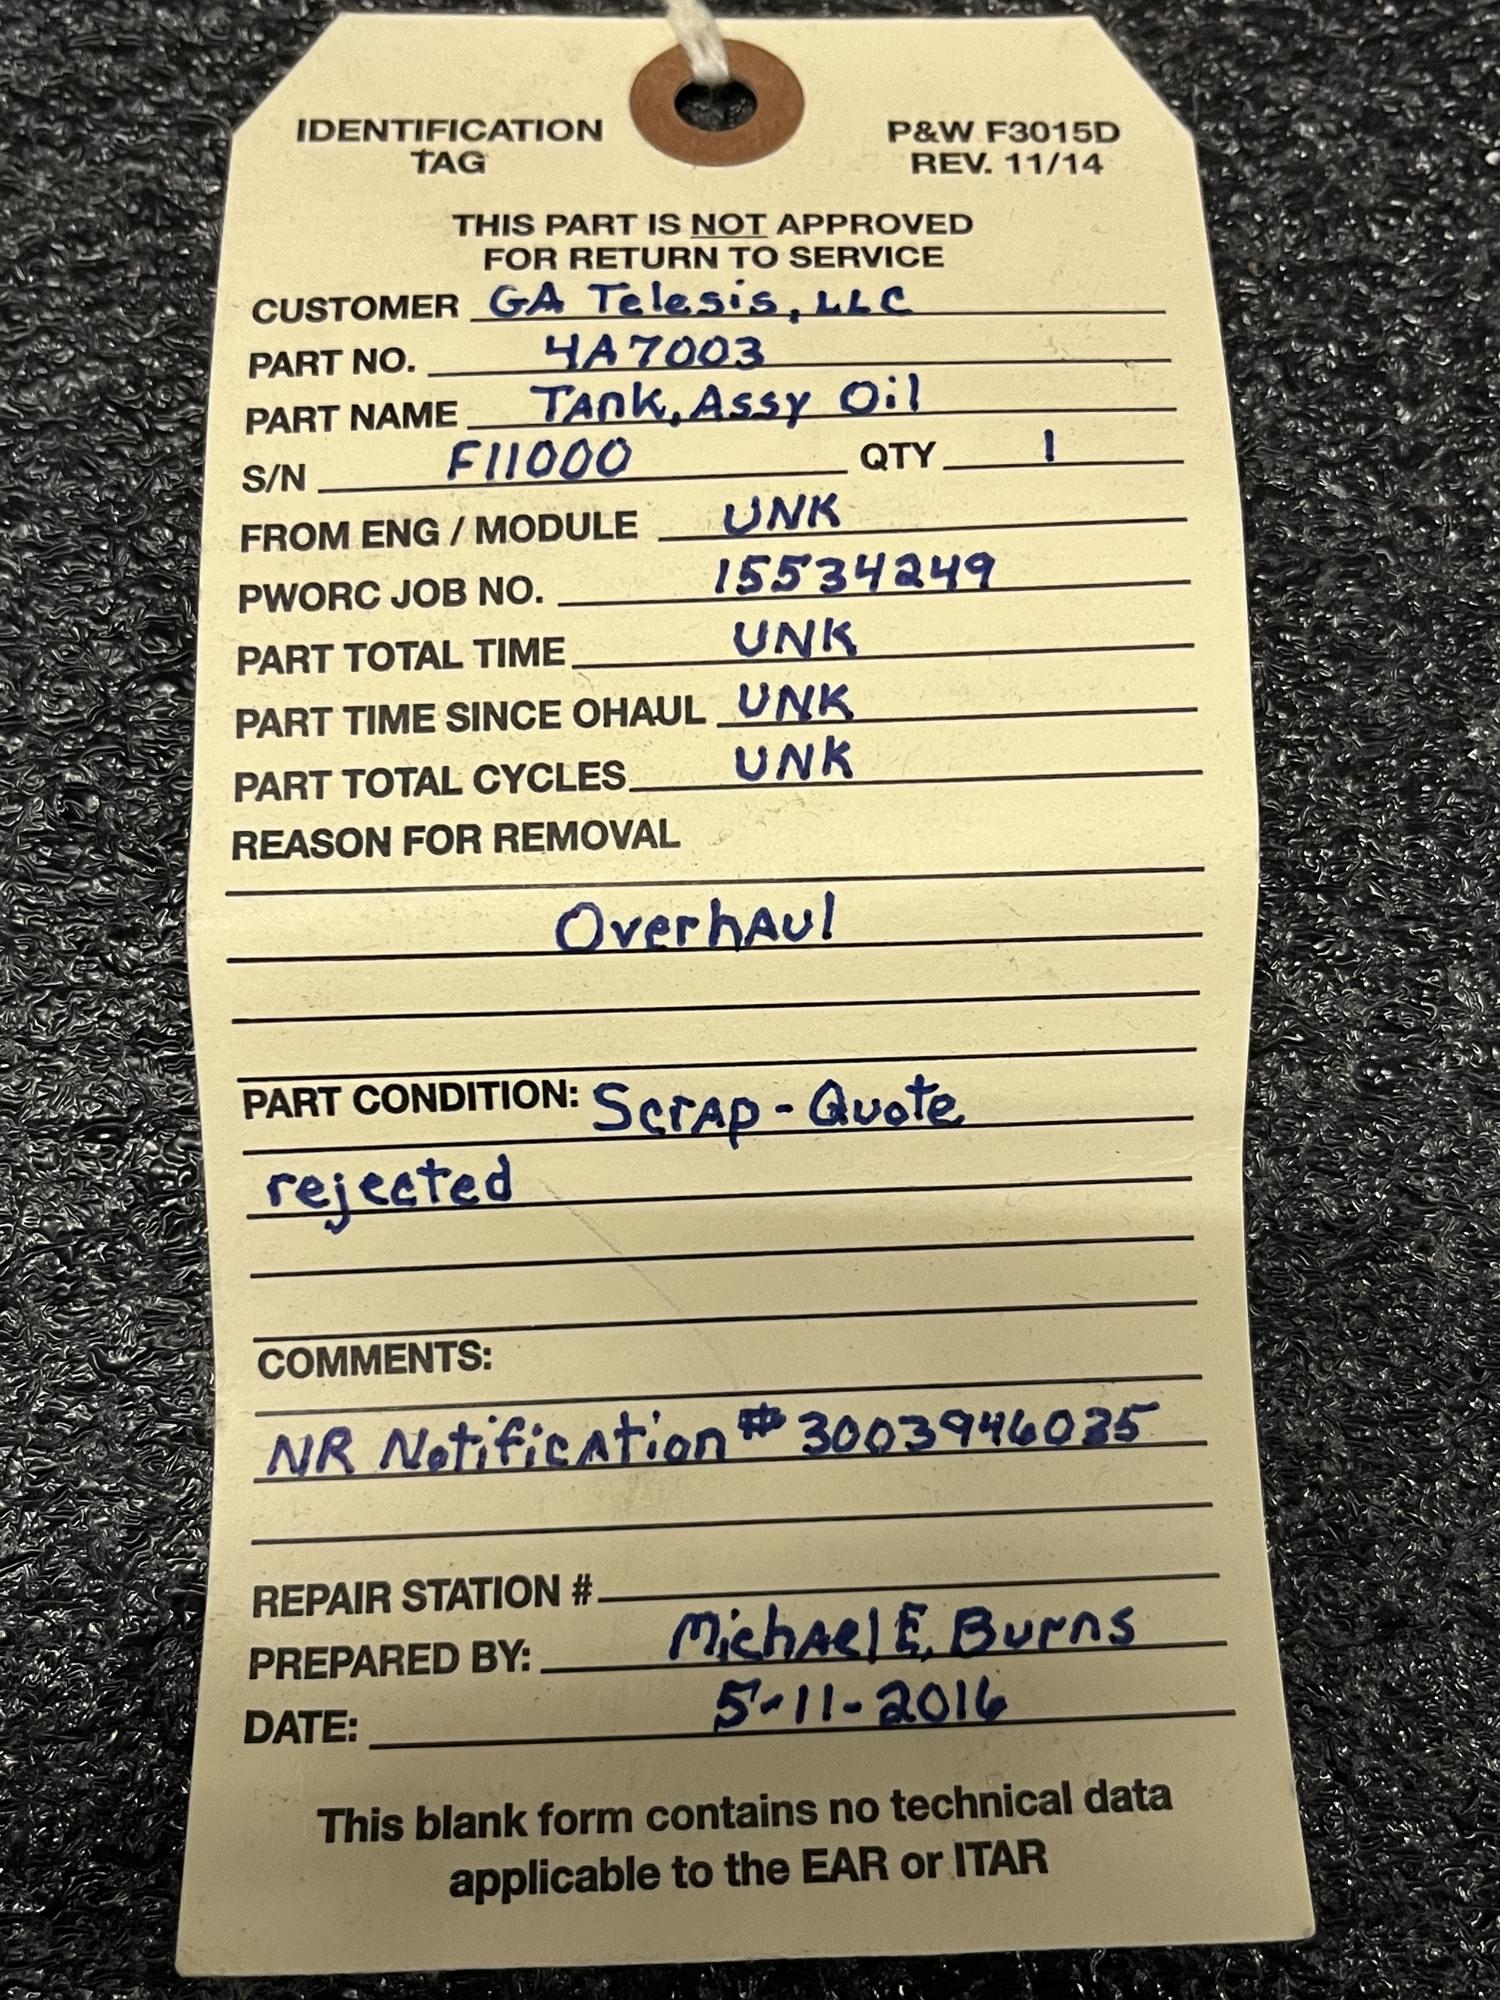 IDENTIFICATION
TAG
P&W F3015D
REV. 11/14
THIS PART IS NOT APPROVED
FOR RETURN TO SERVICE
CUSTOMER GA Telesis, LLC
PART NO. 4A7003
PART NAME Tank, Assy Oil
S/N F11000 QTY 1
FROM ENG / MODULE UNK
PWORC JOB NO. 15534249
PART TOTAL TIME UNK
PART TIME SINCE OHAUL UNK
PART TOTAL CYCLES UNK
REASON FOR REMOVAL
Overhaul
PART CONDITION: Scrap - Quote
rejected
COMMENTS:
NR Notification # 3003946035
REPAIR STATION #
PREPARED BY: Michael E. Burns
DATE: 5-11-2016
This blank form contains no technical data
applicable to the EAR or ITAR